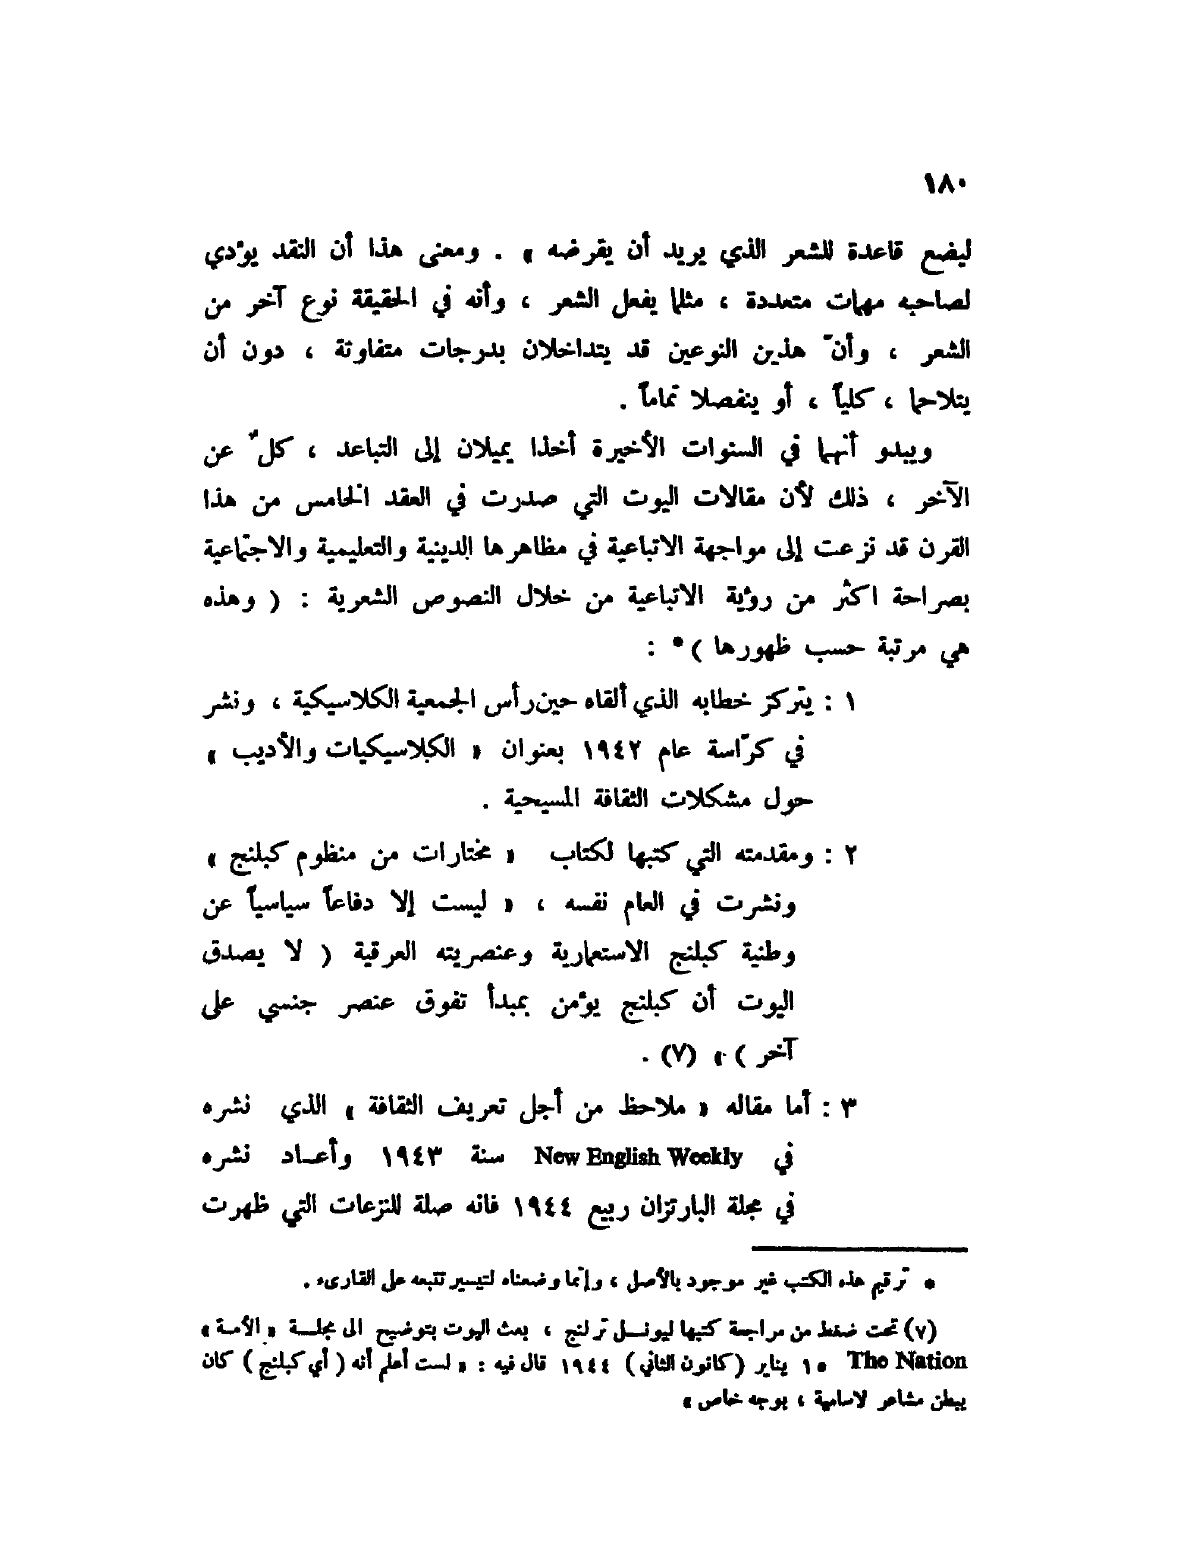 ١٨٠
ليضع قاعدة للشعر الذي يريد أن يقرضه » . ومعنى هذا أن النقد يؤدي
لصاحبه مهمات متعددة ، مثلما يفعل الشعر ، وأنه في الحقيقة نوع آخر من
الشعر ، وأنّ هذين النوعين قد يتداخلان بدرجات متفاوتة ، دون أن
يتلاحما ، كلياً ، أو ينفصلا تماماً .
ويبدو أنهما في السنوات الأخيرة أخذا يميلان إلى التباعد ، كلٌ عن
الآخر ، ذلك لأن مقالات اليوت التي صدرت في العقد الخامس من هذا
القرن قد نزعت إلى مواجهة الاتباعية في مظاهرها الدينية والتعليمية والاجتماعية
بصراحة اكثر من رؤية الاتباعية من خلال النصوص الشعرية : ( وهذه
هي مرتبة حسب ظهورها )* :
١ : يتركز خطابه الذي ألقاه حين رأس الجمعية الكلاسيكية ، ونشر
في كرّاسة عام ١٩٤٢ بعنوان « الكلاسيكيات والأديب »
حول مشكلات الثقافة المسيحية .
٢ : ومقدمته التي كتبها لكتاب « مختارات من منظوم كبلنج »
ونشرت في العام نفسه ، « ليست إلا دفاعاً سياسياً عن
وطنية كبلنج الاستعمارية وعنصريته العرقية ( لا يصدق
اليوت أن كبلنج يؤمن بمبدأ تفوق عنصر جنسي على
آخر ) » (٧) .
٣ : أما مقاله « ملاحظ من أجل تعريف الثقافة » الذي نشره
في New English Weekly سنة ١٩٤٣ وأعاد نشره
في مجلة البارتزان ربيع ١٩٤٤ فانه صلة للنزعات التي ظهرت
* ترقيم هذه الكتب غير موجود بالأصل ، وإنما وضعناه لتيسير تتبعه على القارىء .
(٧) تحت ضغط من مراجعة كتبها ليونـل ترلنج ، بعث اليوت بتوضيح الى مجلـة « الأمـة »
The Nation ١٥ يناير (كانون الثاني) ١٩٤٤ قال فيه : « لست أعلم أنه ( أي كبلنج ) كان
يبطن مشاعر لاسامية ، بوجه خاص »